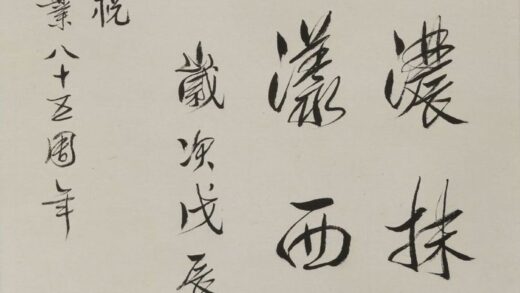 濃抹
漾西
歲次戊辰
祝
業八十五周年